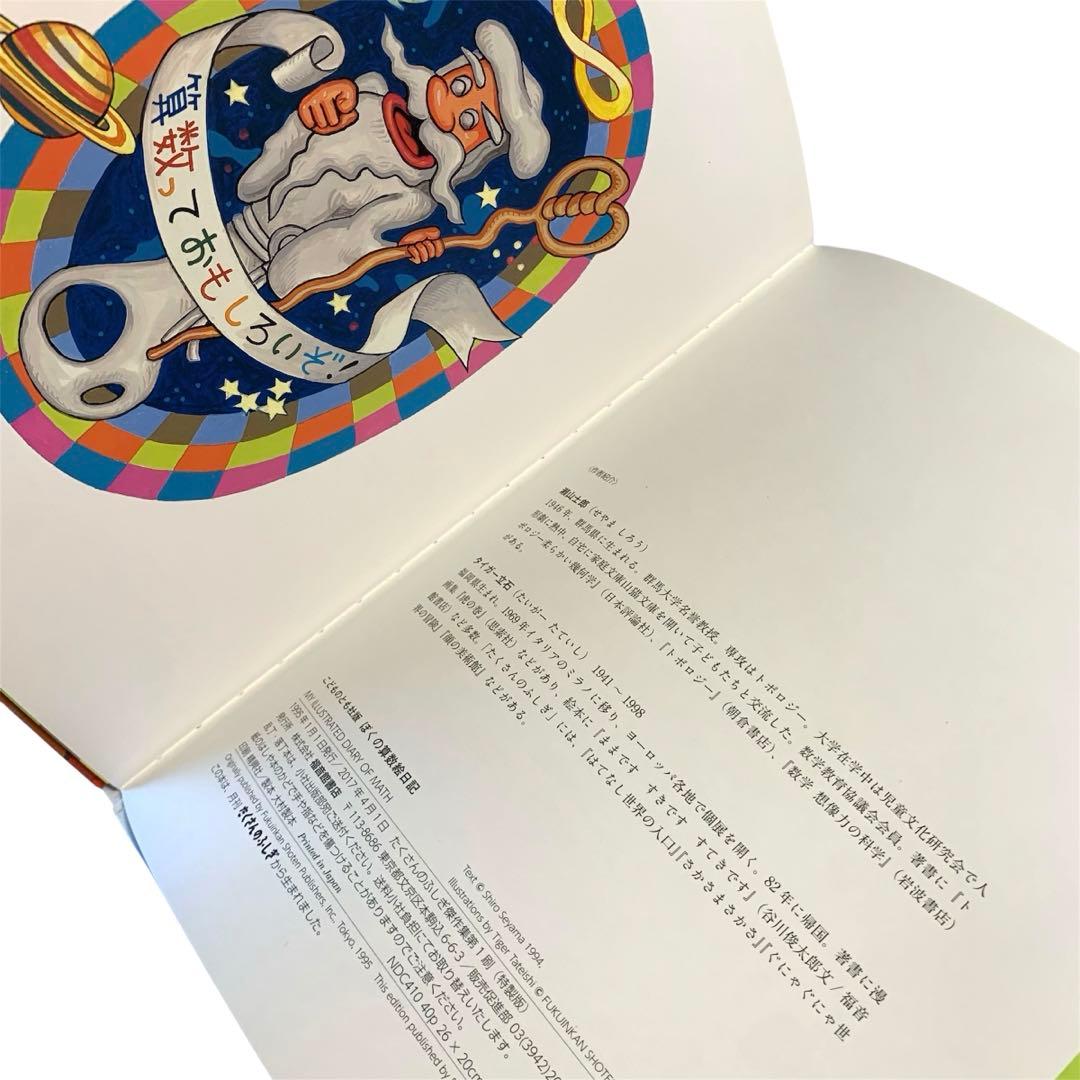 算数っておもしろいぞ!
〈作者紹介〉
瀬山士郎（せやま しろう）
1946年、群馬県に生まれる。群馬大学名誉教授。専攻はトポロジー。大学在学中は児童文化研究会で人
形劇に熱中、自宅に家庭文庫山猫文庫を開いて子どもたちと交流した。数学教育協議会会員。著書に『ト
ポロジー柔らかい幾何学』（日本評論社）、『トポロジー』（朝倉書店）、『数学 想像力の科学』（岩波書店）
がある。
タイガー立石（たいがー たていし） 1941～1998
福岡県生まれ。1969年イタリアのミラノに移り、ヨーロッパ各地で個展を開く。82年に帰国。著書に漫
画集『虎の巻』（思索社）などがあり、絵本に『ままです すきです すてきです』（谷川俊太郎文/福音
館書店）など多数。「たくさんのふしぎ」には、『はてなし世界の入口』『さかさまさかさ』『ぐにゃぐにゃ世
界の冒険』『顔の美術館』などがある。
こどものとも社版 ぼくの算数絵日記
MY ILLUSTRATED DIARY OF MATH
Text © Shiro Seyama 1994,
Illustrations by Tiger Tateishi © FUKUINKAN SHOTE
1995年1月1日発行/2017年4月1日 たくさんのふしぎ傑作集第1刷（特製版）
発行所 株式会社 福音館書店 〒113-8686 東京都文京区本駒込6-6-3/販売促進部 03(3942)
乱丁・落丁本は、小社出版部宛ご送付ください。送料小社負担にてお取り替えいたします。
紙のはしや本のかどで手や指などを傷つけることがありますのでご注意ください。
印刷 精興社/製本 大村製本 Printed in Japan NDC410 40p 26×20cm
Originally published by Fukuinkan Shoten Publishers, Inc., Tokyo, 1995 This edition published by
この本は、月刊たくさんのふしぎから生まれました。